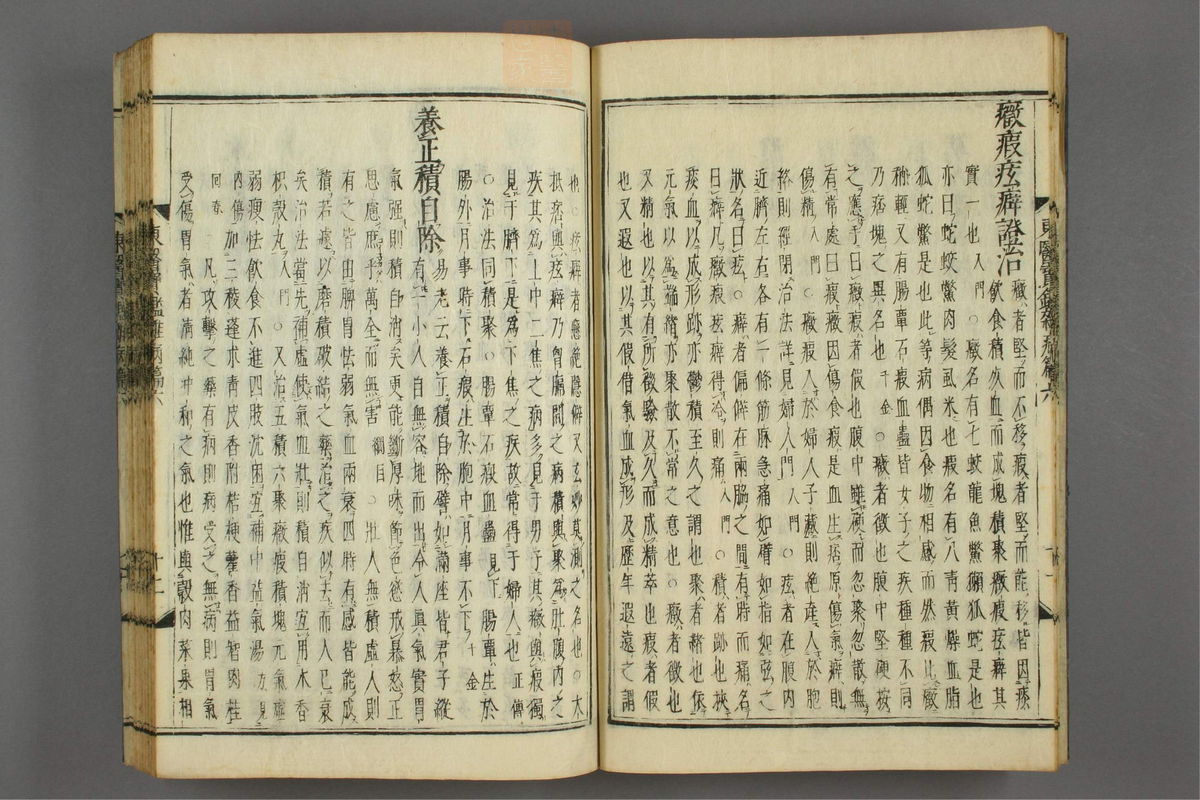 癥瘕痃癖證治
癥者堅而不移瘕者堅而能移皆因痰
飲食積死血而成塊積聚癥瘕痃癖其
實一也○癥名有七蛟龍魚鱉獺狐蛇是也
亦曰蛇蛟鱉肉髮虱米也瘕名有八靑黃燥血脂
狐蛇鱉是也此等病偶因食物相感而然瘕比癥
稍輕又有腸覃石瘕血蠱皆女子之疾種種不同
乃痞塊之異名也千金○癥者徵也腹中堅硬按
之應手曰癥瘕者假也腹中雖硬而忽聚忽散無
有常處曰瘕癥因傷食瘕是血生痞原傷氣癖則
傷精入門○癥瘕入於婦人子藏則絶産入於胞
絡則經閉治法詳見婦人門入門○痃者在腹內
近臍左右各有一條筋脉急痛如臂如指如弦之
狀名曰痃癖者偏僻在兩脇之間有時而痛名
曰癖凡痃癖得冷則痛入門○積者跡也挾
痰血以成形跡亦鬱積至久之謂也聚者緖也依
元氣以爲端緖亦聚散不常之意也○癥者徵也
又精也以其有所徵驗及久而成精萃也瘕者假
也又遐也以其假借氣血成形及歷年遐遠之謂
東醫寶鑑雜病篇六
也○痃癖者懸絶隱僻又玄妙莫測之名也○大
抵痞與痃癖乃胸膈間之病積與聚爲肚腹內之
疾其爲上中二焦之病多見于男子其癥與瘕獨
見于臍下是爲下焦之疾故常得于婦人也正傳
○治法同積聚○腸覃石瘕血蠱見下腸覃生於
腸外月事時下石瘕生於胞中月事不下千金
養正積自除
易老云養正積自除譬如滿座皆君子縱
有一小人自無容地而出令人眞氣實胃
氣强則積自消矣更能斷厚味節色慾戒暴怒正
思慮庶乎萬全而無害綱目○壯人無積虛人則
有之皆由脾胃怯弱氣血兩衰四時有感皆能成
積若遽以磨積破結之藥治之疾似去而人已衰
矣治法當先補虛使氣血壯則積自消宜用木香
枳殼丸入門○又治五積六聚癥瘕積塊元氣虛
弱瘦怯飮食不進四肢沈困宜補中益氣湯方見
內傷加三稜蓬朮靑皮香附桔梗藿香益智肉桂
回春○凡攻擊之藥有病則病受之無病則胃氣
受傷胃氣者淸純冲和之氣也惟與穀肉菜果相
東醫寶鑑雜病篇六
十二